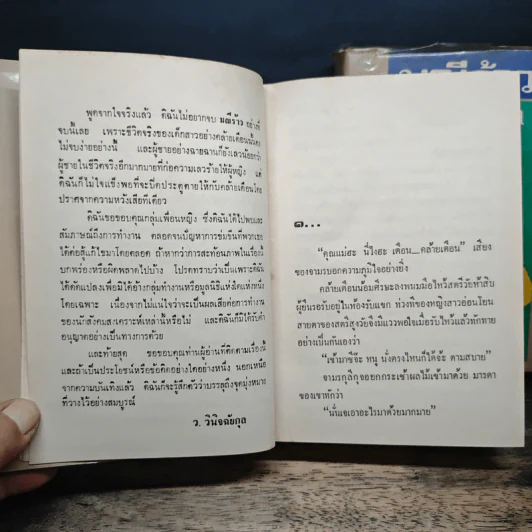 พูดจากใจจริงแล้ว ดิฉันไม่อยากจบ มณีร้าว อย่างที่
จบนี้เลย เพราะชีวิตจริงของเด็กสาวอย่างคล้ายเดือนนั้นคง
ไม่จบง่ายอย่างนี้ และผู้ชายอย่างฉายฉานก็ยังเลวน้อยกว่า
ผู้ชายในชีวิตจริงอีกมากมายที่ก่อความเลวร้ายให้ผู้หญิง แต่
ดิฉันก็ไม่ใจแข็งพอที่จะปิดประตูตายให้กับคล้ายเดือนโดย
ปราศจากความหวังเสียทีเดียว
ดิฉันขอขอบคุณกลุ่มเพื่อนหญิง ซึ่งดิฉันได้ไปพบและ
สัมภาษณ์ถึงการทำงาน ตลอดจนปัญหาการข่มขืนที่พวกเธอ
ได้ต่อสู้แก้ไขมาโดยตลอด ถ้าหากว่าการสะท้อนภาพในเรื่องนี้
บกพร่องหรือผิดพลาดไปบ้าง โปรดทราบว่าเป็นเพราะดิฉัน
ได้ดัดแปลงเพื่อมิให้อ้างกลุ่มทำงานหรือมูลนิธิแห่งใดแห่งหนึ่ง
โดยเฉพาะ เนื่องจากไม่แน่ใจว่าจะเป็นผลเสียต่อการทำงาน
ของนักสังคมสงเคราะห์เหล่านั้นหรือไม่ และดิฉันก็มิได้รับคำ
อนุญาตอย่างเป็นทางการด้วย
และท้ายสุด ขอขอบคุณท่านผู้อ่านที่ติดตามเรื่องนี้
และถ้าเป็นประโยชน์หรือข้อคิดอย่างใดอย่างหนึ่ง นอกเหนือ
จากความบันเทิงแล้ว ดิฉันก็จะรู้สึกตัวว่าบรรลุถึงจุดมุ่งหมาย
ที่วางไว้อย่างสมบูรณ์
ว. วินิจฉัยกุล
๑...
“คุณแม่ฮะ นี่ไงฮะ เดือน...คล้ายเดือน” เสียง
ของจามรบอกความภูมิใจอย่างยิ่ง
คล้ายเดือนน้อมศีรษะลงพนมมือไหว้สตรีวัยห้าสิบ
ผู้ยืนรอรับอยู่ในห้องรับแขก ท่วงทีของหญิงสาวอ่อนโยน
สายตาของสตรีสูงวัยจึงมีแววพอใจเมื่อรับไหว้แล้วทักทาย
อย่างเป็นกันเองว่า
“เข้ามาซิจ๊ะ หนู นั่งตรงไหนก็ได้จ้ะ ตามสบาย”
จามรกุลีกุจอยกกระเช้าผลไม้เข้ามาด้วย มารดา
ของเขาทักว่า
“นั่นแจเอาอะไรมาด้วยมากมาย”